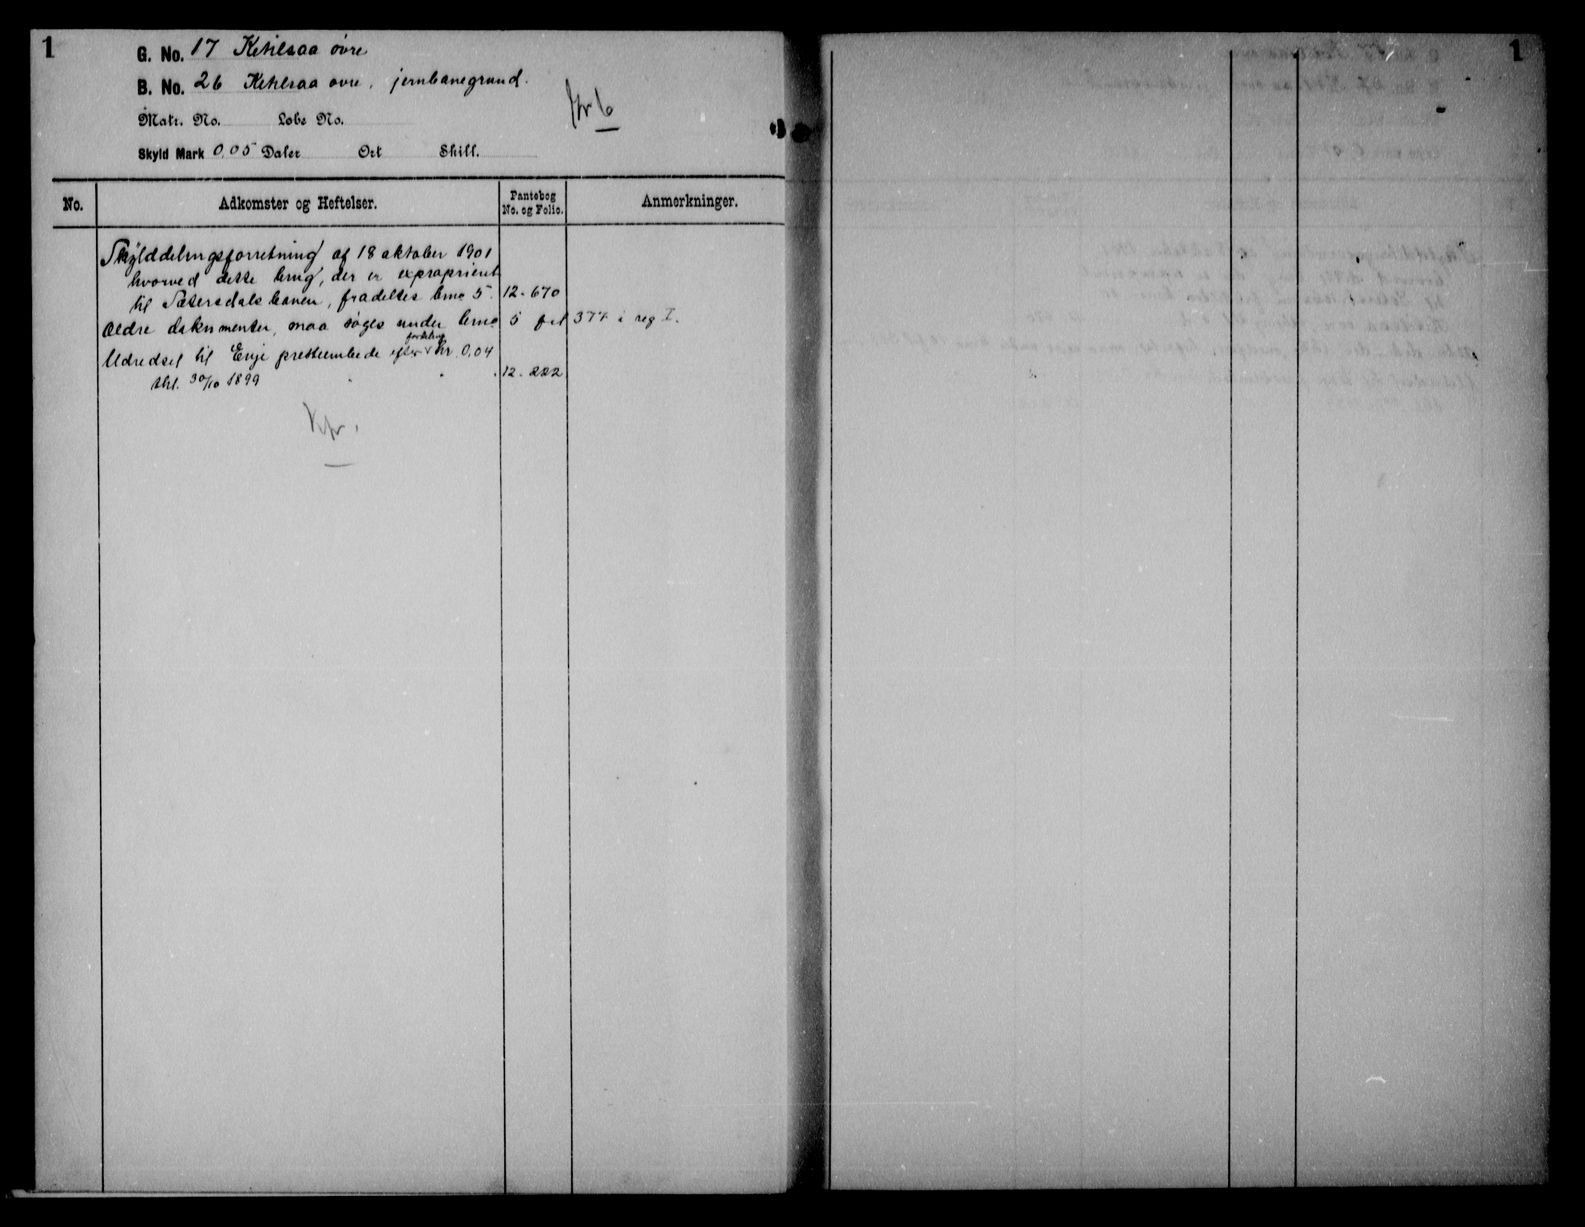 1
G. No. 17 Ketilsaa øvre
B. No. 26 Ketilsaa øvre, jernbanegrund.
Matr. No. Løbe No.
Skyld Mark 0,05 Daler Ort Skill.
No. Adkomster og Heftelser. Pantebog No. og Folio. Anmerkninger.
Skylddelingsforretning af 18 oktober 1901
hvorved dette brug, der er expropriert
til Sætersdalsbanen, fradeltes brno 5. 12-670
Ældre dokumenter, maa søges under brno 5 fol 377 i reg I.
fordeling
Udredsel til Evje presteembede efter Kr 0,04
thl. 30/10 1899 12-222
1